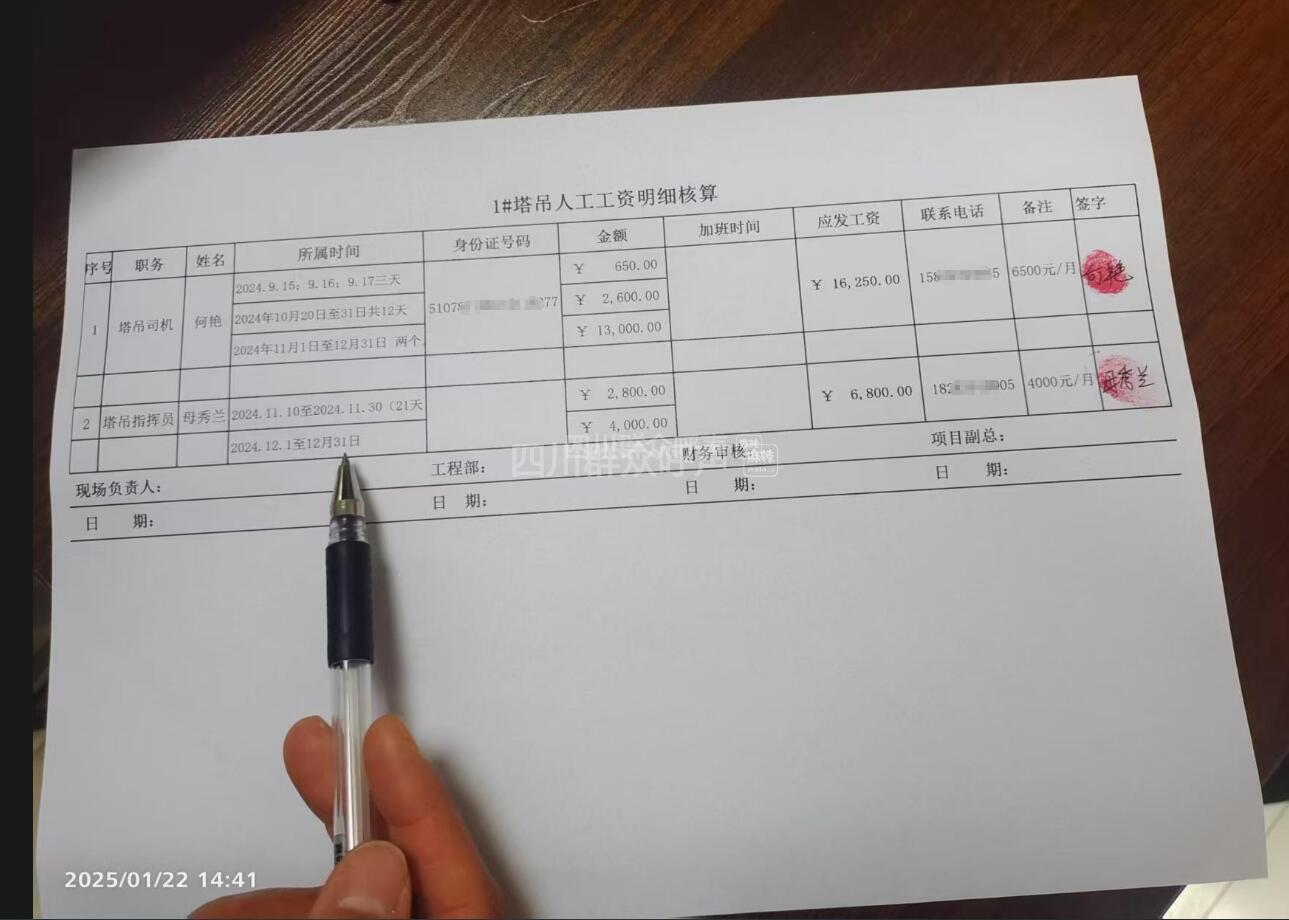 1#塔吊人工工资明细核算
序号 职务 姓名 所属时间 身份证号码 金额 加班时间 应发工资 联系电话 备注 签字
1 塔吊司机 何艳 2024.9.15; 9.16; 9.17三天 51078 277 ¥ 650.00 ¥ 16,250.00 158 5 6500元/月 何艳
2024年10月20日至31日共12天 ¥ 2,600.00
2024年11月1日至12月31日 两个 ¥ 13,000.00
2 塔吊指挥员 母秀兰 2024.11.10至2024.11.30（21天 ¥ 2,800.00 ¥ 6,800.00 182 905 4000元/月 母秀兰
2024.12.1至12月31日 ¥ 4,000.00
现场负责人: 工程部: 财务审核: 项目副总:
日 期: 日 期: 日 期: 日 期:
四川群众呼声
2025/01/22 14:41